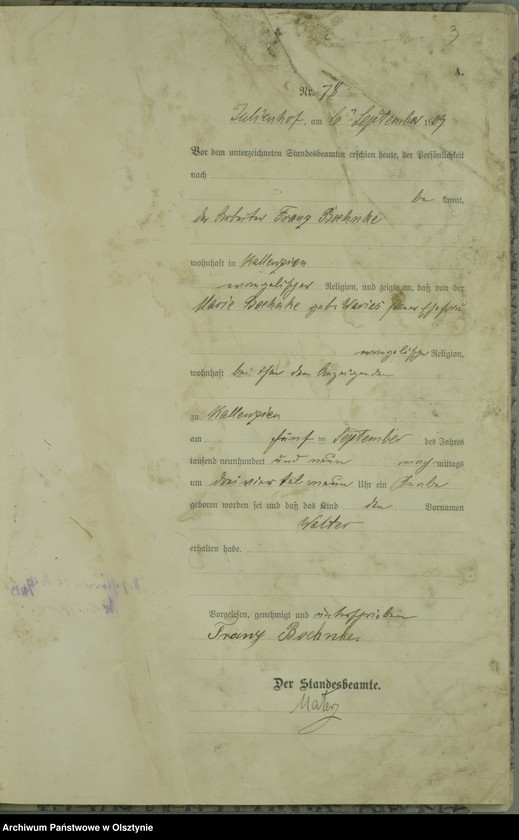 3
A.
Nr. 78
Julienhof, am 6ten September 1909
Vor dem unterzeichneten Standesbeamten erschien heute, der Persönlichkeit
nach
be kannt,
der Arbeiter Franz Boehnke
wohnhaft in Kallenzien
evangelischer Religion, und zeigte an, daß von der
Marie Boehnke geb. seiner Ehefrau
evangelischer Religion,
wohnhaft bei ihm dem Anzeigenden
zu Kallenzien
am fünf ten September des Jahres
tausend neunhundert und neun nach mittags
um drei viertel neun Uhr ein Knabe
geboren worden sei und daß das Kind den Vornamen
Walter
erhalten habe.
Vorgelesen, genehmigt und unterschrieben
Franz Boehnke.
Der Standesbeamte.
Archiwum Państwowe w Olsztynie